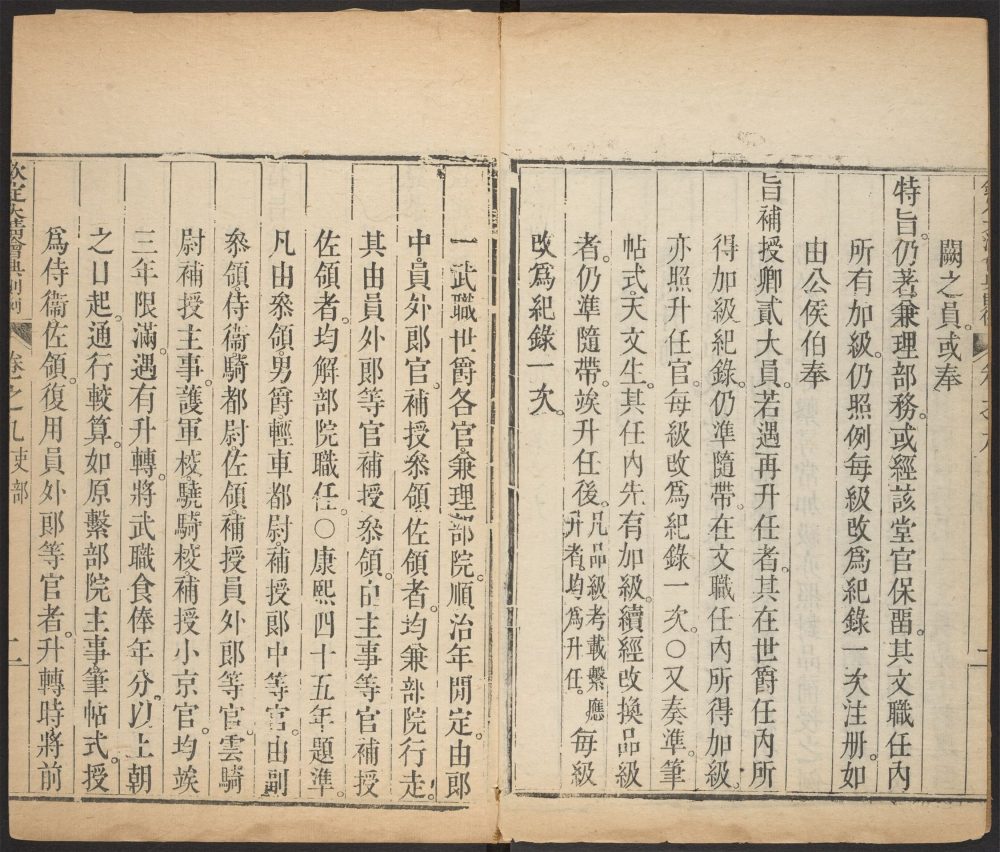 闕之員或奉
特旨仍著兼理部務或經該堂官保畱其文職任內
所有加級仍照例每級改爲紀錄一次注册如
由公侯伯奉
旨補授卿貳大員若遇再升任者其在世爵任內所
得加級紀錄仍準隨帶在文職任內所得加級
亦照升任官每級改爲紀錄一次〇又奏準筆
帖式天文生其任內先有加級續經改換品級
者仍準隨帶竢升任後凡品級考載繫應升者均爲升任每級
改爲紀錄一次
一武職世爵各官兼理部院順治年閒定由郎
中員外郎官補授叅領佐領者均兼部院行走
其由員外郎等官補授叅領由主事等官補授
佐領者均解部院職任〇康熙四十五年題準
凡由叅領男爵輕車都尉補授郎中等官由副
叅領侍衞騎都尉佐領補授員外郎等官雲騎
尉補授主事護軍校驍騎校補授小京官均竢
三年限滿遇有升轉將武職食俸年分以上朝
之日起通行較算如原繫部院主事筆帖式授
爲侍衞佐領復用員外郎等官者升轉時將前
欽定大清會典則例 卷之九吏部 二